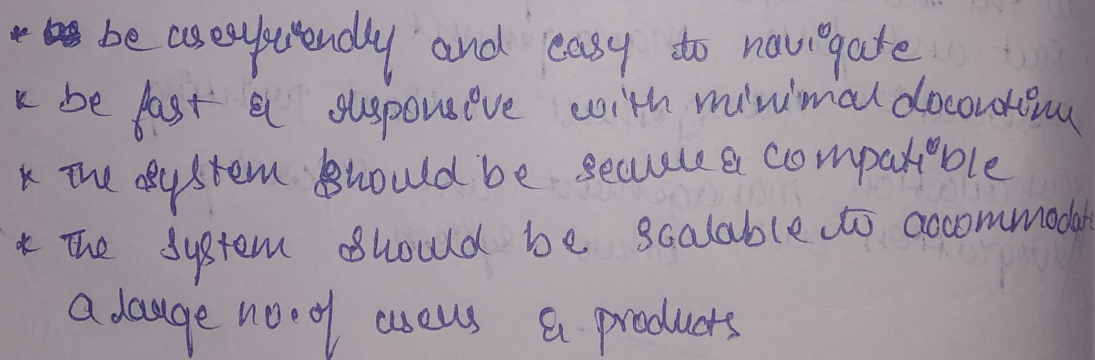 * be userfriendly and easy to navigate
* be fast & responsive with minimal docontime
* the system should be secure & compatible
* the system should be scalable to accommodate
a large no. of users & products